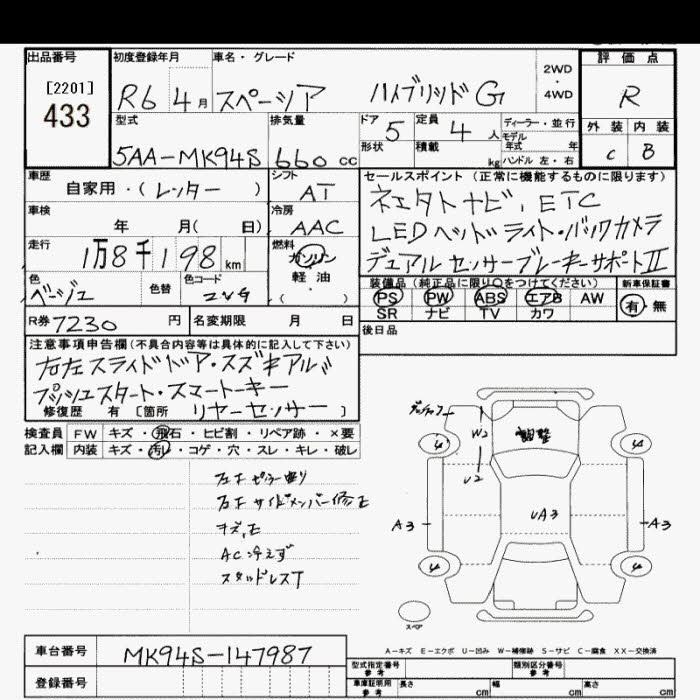 出品番号 初度登録年月 車名・グレード 評価点
[2201]
433
R6 4月 スペーシア ハイブリッドG 2WD・4WD R
型式 排気量 ドア 5 定員 4人 ディーラー・並行 外装 内装
モデル年式 年
5AA-MK94S 660cc 形状 積載 kg ハンドル 左・右 C B
車歴 シフト セールスポイント(正常に機能するものに限ります)
自家用・(レンタカー) AT
車検 年 月(日) 冷房 AAC
走行 1万8千198km 燃料 ガソリン・軽油・( )
LEDヘッドライト・バックカメラ
デュアルセンサーブレーキサポートII
色 色替 色コード 装備品(純正品に限り○をつけてください) 新車保証書
ベージュ PS PW ABS エアB AW 有・無
SR ナビ TV カワ
R券 7230円 名変期限 月 日 後日品
注意事項申告欄(不具合内容等は具体的に記入して下さい)
右左スライドドア・スズキアルバ
プッシュスタート・スマートキー
修復歴 有[箇所 リヤーセンサー ]
検査員 FW キズ・飛石・ヒビ割・リペア跡・×要
記入欄 内装 キズ・汚レ・コゲ・穴・スレ・キレ・破レ
W2 調整
U2
左Fサイドメンバー修正
A3 UA3 A3
AC冷えず
スタッドレスT
スペア
車台番号 MK94S-147987 A-キズ E-エクボ U-凹み W-補修跡 S-サビ C-腐食 XX-交換済
型式指定番号 参考 類別区分番号 参考
登録番号 車庫証明用 参考 長さ cm 幅 cm 高さ cm